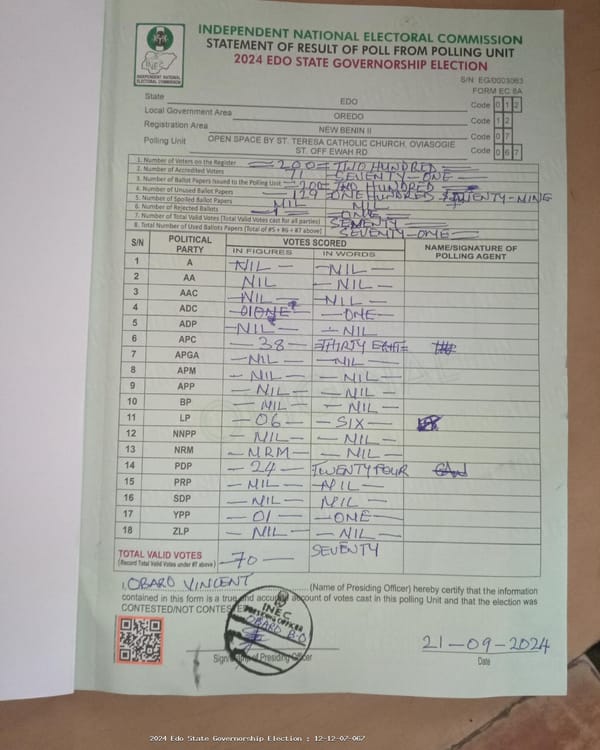 INDEPENDENT NATIONAL ELECTORAL COMMISSION
STATEMENT OF RESULT OF POLL FROM POLLING UNIT
2024 EDO STATE GOVERNORSHIP ELECTION
INEC
INDEPENDENT NATIONAL ELECTORAL COMMISSION
S/N: EG/0003063
FORM EC 8A
State EDO Code 0 1 2
Local Government Area OREDO Code 1 2
Registration Area NEW BENIN II Code 0 7
Polling Unit OPEN SPACE BY ST. TERESA CATHOLIC CHURCH, OVIASOGIE ST. OFF EWAH RD Code 0 6 7
1. Number of Voters on the Register 200 TWO HUNDRED
2. Number of Accredited Voters 71 SEVENTY-ONE
3. Number of Ballot Papers Issued to the Polling Unit 200 TWO HUNDRED
4. Number of Unused Ballot Papers 129 ONE HUNDRED TWENTY-NING
5. Number of Spoiled Ballot Papers NIL NIL
6. Number of Rejected Ballots 1 ONE
7. Number of Total Valid Votes (Total Valid Votes cast for all parties) SEVENTY
8. Total Number of Used Ballots Papers (Total of #5 + #6 + #7 above) SEVENTY-ONE
S/N POLITICAL PARTY VOTES SCORED NAME/SIGNATURE OF POLLING AGENT
IN FIGURES IN WORDS
1 A NIL NIL
2 AA NIL NIL
3 AAC NIL NIL
4 ADC 01ONE ONE
5 ADP NIL NIL
6 APC 38 THIRTY EIGHT
7 APGA NIL NIL
8 APM NIL NIL
9 APP NIL NIL
10 BP NIL NIL
11 LP 06 SIX
12 NNPP NIL NIL
13 NRM NRM NIL
14 PDP 24 TWENTY FOUR
15 PRP NIL NIL
16 SDP NIL NIL
17 YPP 01 ONE
18 ZLP NIL NIL
TOTAL VALID VOTES 70 SEVENTY
(Record Total Valid Votes under #7 above)
I, OBARO VINCENT (Name of Presiding Officer) hereby certify that the information
contained in this form is a true and accurate account of votes cast in this polling Unit and that the election was
CONTESTED/NOT CONTESTED
INEC
PRESIDING OFFICER
OBARO B.O
Signature of Presiding Officer
21-09-2024
Date
2024 Edo State Governorship Election : 12-12-07-067